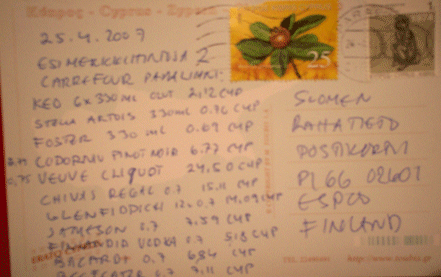 Κύπρος - Cyprus - Zypern
25.4.2007
ESIMERKKIHINTOJA 2
CARREFOUR
KEO 6x330ML OLUT 2,12 CYP
STELLA ARTOIS 330ML 0.76 CYP
FOSTER 330 ML 0.69 CYP
CODORNIU PINOT NOIR 6.77 CYP
0,75 VEUVE CLIQUOT 24,50 CYP
CHIVAS REGAL 0.7 15,11 CYP
GLENFIDDICH 0,7 CYP
JAMESON 0.7 7.59 CYP
FINLANDIA VODKA 0.7 CYP
BACARDI 0.7 6,84 CYP
0.7 7.11 CYP
25
1
SUOMEN
RAHATIETO
POSTIKORTTI
PL 66 02601
ESPOO
FINLAND